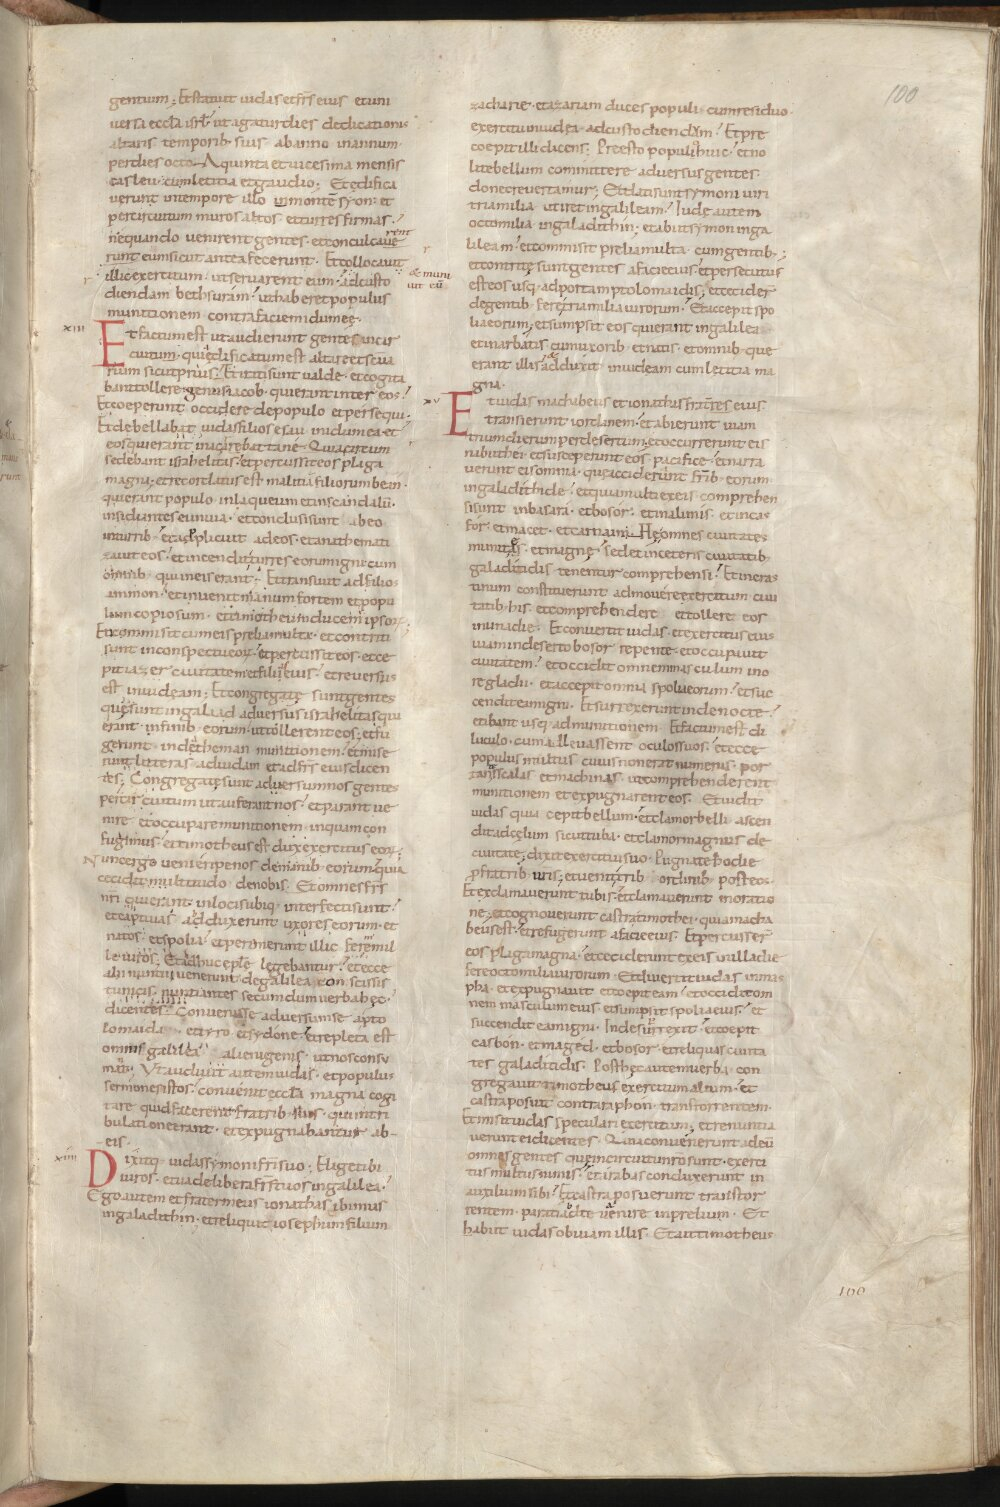 100
gentium; Et statuit iudas et frs eius et uni
uersa eccla isrl ut agatur dies dedicationis
altaris temporib suis ab anno in annum
per dies octo A quinta et uicesima mensis
casleu cum letitia et gaudio; Et edifica
uerunt in tempore illo in montē syon et
per circuitum muros altos et turres firmas
nequando uenirent gentes et conculcaue
rent
runt eum sicut antea fecerunt Et collocauit
illic exercitum ut seruarent eum ad custo
et muni
uit eū
diendam bethsuram ut haberet populus
munitionem contra faciem idumeę
xiii
Et factum est ut audierunt gentes in cir
cuitum quia edificatum est altare et scua
rium sicut prius Et irati sunt ualde et cogita
bant tollere genus iacob qui erant inter eos
Et coeperunt occidere de populo et persequi
Et debellabat iudas filios esau in idumea et
eos qui erant in acrebattane Quia circum
sedebant israhelitas et percussit eos plaga
magna et recordatus est malitiā filiorum bean
qui erant populo in laqueum et in scandalū
insidiantes ei in uia et conclusi sunt ab eo
in turrib et applicuit ad eos et anathemati
zauit eos et incendit turres eorum igni cum
omnib qui in eis erant Et transiuit ad filios
ammon et inuenit manum fortem et popu
lum copiosum et timotheum ducem ipsor
Et commisit cum eis prelia multa et contriti
sunt in conspectu eor et percussit eos et ce
pit iazer ciuitatem et filias eius et reuersus
est in iudeam; Et congregatę sunt gentes
quę sunt in galaad aduersus israhelitas qui
erant in finib eorum ut tollerent eos et fu
gerunt in datheman munitionem et mise
runt litteras ad iudam et ad frs eius dicen
tes; Congregatę sunt aduersum nos gentes
per circuitum ut auferant nos et parant ue
nire et occupare munitionem in quam con
fugimus et timotheus est dux exercitus eor
Nunc ergo ueni eripe nos de manib eorum quia
cecidit multitudo de nobis Et omnes frs
nri qui erant in locis tubin interfecti sunt
et captiuas adduxerunt uxores eorum et
natos et spolia et peremerunt illic fere mil
le uiros; Et adhuc eple legebantur et ecce
alii nuntii uenerunt de galilea con scissis
tunicis nuntiantes secundum uerba hęc
dicentes Conuenisse aduersum se a pto
lomaida et tyro et sydone et repleta est
omnis galilea alienigenis ut nos consu
mant Ut audiuit autem iudas et populus
sermones istos conuenit eccla magna cogi
tare quid facerent fratrib suis qui in tri
bulatione erant et expugnabantur ab
eis
xiiii
Dixitq iudas symoni fri suo; Elige tibi
uiros et uade libera frs tuos in galilea
Ego autem et frater meus ionathas ibimus
in galadithin et reliquit iosephum filium
zacharie et azariam duces populi cum residuo
exercitu in iudea ad custodiendam Et pre
coepit illi dicens; Preesto populi huic et no
lite bellum committere aduersus gentes
donec reuertamur; Et dati sunt symoni uiri
tria milia ut iret in galileam Iudę autem
octo milia in galadithin et abiit symon in ga
lileam et commisit prelia multa cum gentib;
et contritę sunt gentes a facie eius et persecutus
est eos usq; ad portam ptolomaidis et cecider
de gentib fere tria milia uirorum Et accepit spo
lia eorum et sumpsit eos qui erant in galilea
et in arbatis cum uxorib et natis et omnib que
erant illis et adduxit in iudeam cum letitia ma
gna
xv
Et iudas machabeus et ionathas fratres eius
transierunt iordanem et abierunt uiam
trium dierum per desertum et occurrerunt eis
nabuthei et susceperunt eos pacifice et narra
uerunt eis omnia quę acciderunt frib eorum
in galadithide et quia multi ex eis comprehen
si sunt in basara et bosor et in alimis et in cas
for et macet et carnaim Hę omnes ciuitates
munitę et magnę Sed et in ceteris ciuitatib
galaditidis tenentur comprehensi Et in cras
tinum constituerunt admouere exercitum ciui
tatib his et comprehendere et tollere eos
in una die Et conuertit iudas et exercitus eius
uiam in deserto bosor repente et occupauit
ciuitatem et occidit omnem masculum in o
re gladii et accepit omnia spolia eorum et suc
cendit eam igni Et surrexerunt inde nocte
et ibant usq ad munitionem Et factum est di
luculo cum alleuassent oculos suos et ecce
populus multus cuius non erat numerus por
tans scalas et machinas ut comprehenderent
munitionem et expugnarent eos Et uidit
iudas quia cepit bellum et clamor belli ascen
dit ad cęlum sicut tuba et clamor magnus de
ciuitate; dixit exercitui suo Pugnate hodie
p fratrib uris; et uenit trib ordinib post eos
Et exclamauerunt tubis et clamauerunt in oratio
ne; et cognouerunt castra timothei quia macha
beus est et refugerunt a facie eius Et percusser
eos plaga magna et ceciderunt ex eis in illa die
fere octo milia uirorum Et diuertit iudas in mas
pha et expugnauit et coepit eam et occidit om
nem masculum eius et sumpsit spolia eius et
succendit eam igni Inde surrexit et coepit
casbon et maged et bosor et reliquas ciuita
tes galaditidis Post hęc autem uerba con
gregauit timotheus exercitum alium et
castra posuit contra raphon trans torrentem
Et misit iudas speculari exercitum; et renuntia
uerunt ei dicentes Quia conuenerunt ad eū
omnes gentes que in circuitu nro sunt exerci
tus multus nimis et arabas conduxerunt in
auxilium sibi Et castra posuerunt trans tor
rentem parati ad te uenire in prelium Et
habiit iudas obuiam illis Et ait timotheus
100